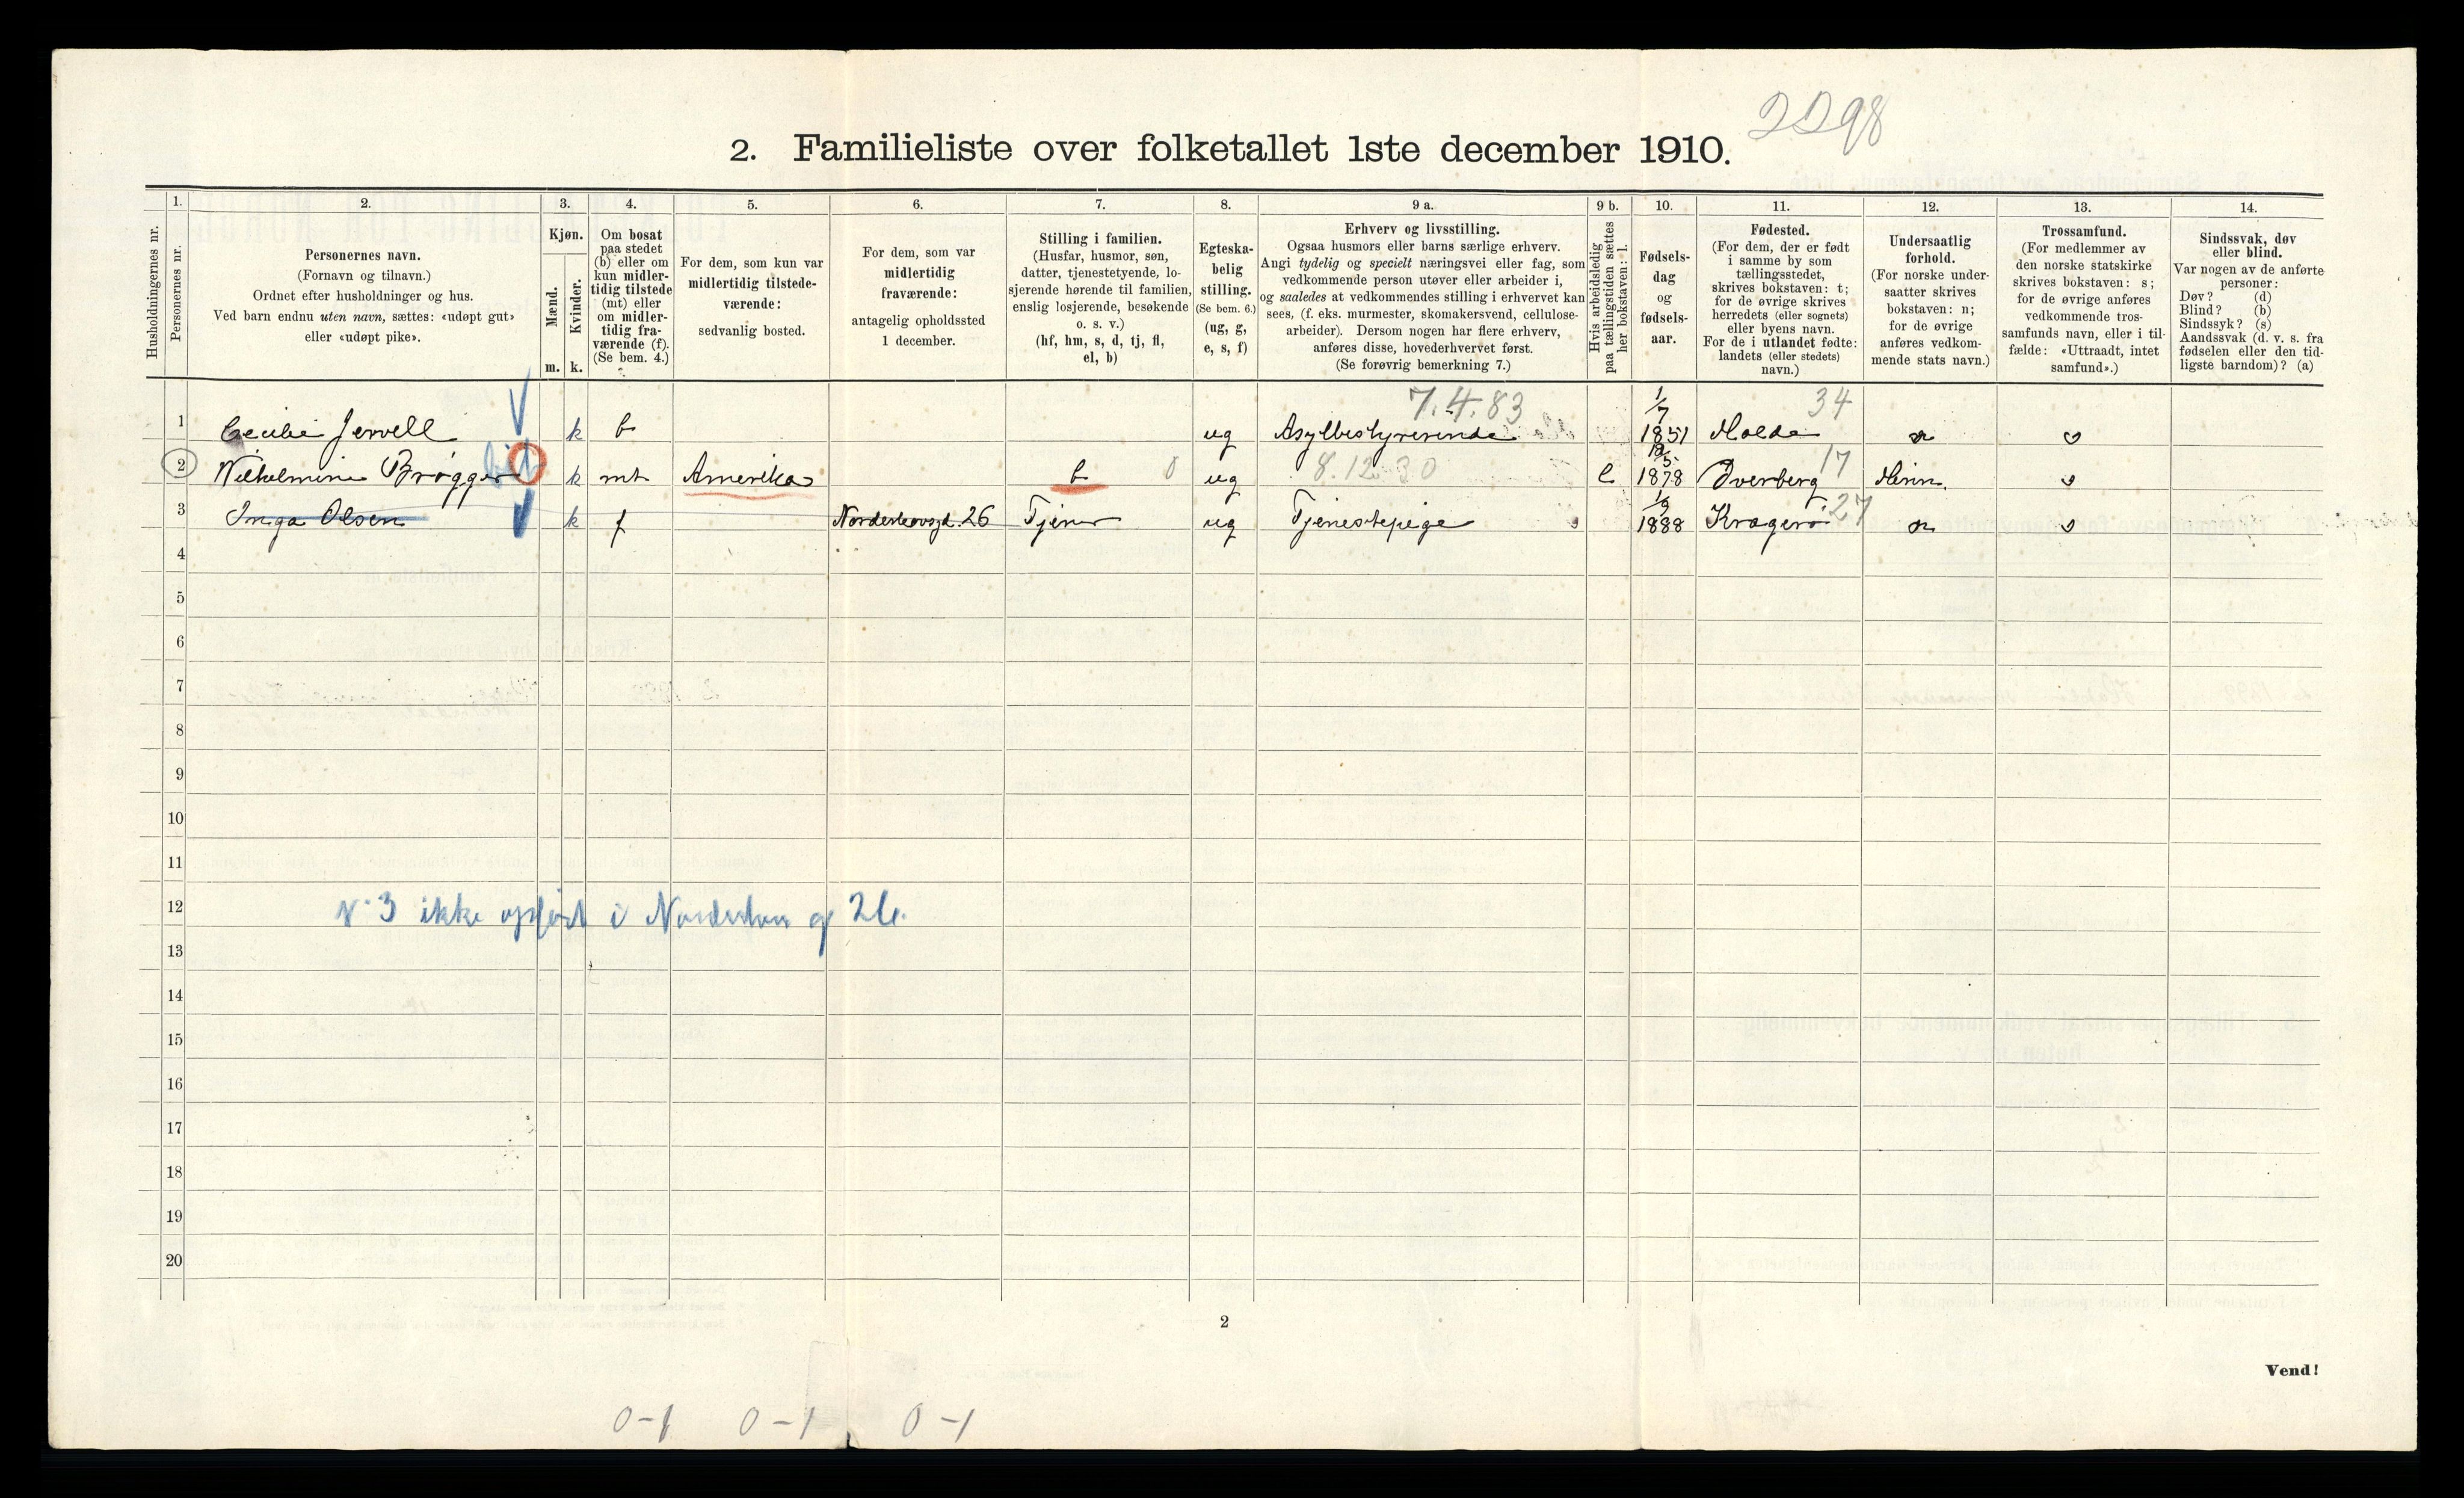 2298
2. Familieliste over folketallet 1ste december 1910.
Husholdningernes nr.
1.
Personernes nr.
2.
Personernes navn.
(Fornavn og tilnavn.)
Ordnet efter husholdninger og hus.
Ved barn endnu uten navn, sættes: «udøpt gut»
eller «udøpt pike».
3.
Kjøn.
Mænd.
Kvinder.
m. k.
4.
Om bosat
paa stedet
(b) eller om
kun midler-
tidig tilstede
(mt) eller
om midler-
tidig fra-
værende (f).
(Se bem. 4.)
5.
For dem, som kun var
midlertidig tilstede-
værende:
sedvanlig bosted.
6.
For dem, som var
midlertidig
fraværende:
antagelig opholdssted
1 december.
7.
Stilling i familien.
(Husfar, husmor, søn,
datter, tjenestetyende, lo-
sjerende hørende til familien,
enslig losjerende, besøkende
o. s. v.)
(hf, hm, s, d, tj, fl,
el, b)
8.
Egteska-
belig
stilling.
(Se bem. 6.)
(ug, g,
e, s, f)
9 a.
Erhverv og livsstilling.
Ogsaa husmors eller barns særlige erhverv.
Angi tydelig og specielt næringsvei eller fag, som
vedkommende person utøver eller arbeider i,
og saaledes at vedkommendes stilling i erhvervet kan
sees, (f. eks. murmester, skomakersvend, cellulose-
arbeider). Dersom nogen har flere erhverv,
anføres disse, hovederhvervet først.
(Se forøvrig bemerkning 7.)
9 b.
Hvis arbeidsledig
paa tællingstiden sættes
her bokstaven: l.
10.
Fødsels-
dag
og
fødsels-
aar.
11.
Fødested.
(For dem, der er født
i samme by som
tællingsstedet,
skrives bokstaven: t;
for de øvrige skrives
herredets (eller sognets)
eller byens navn.
For de i utlandet fødte:
landets (eller stedets)
navn.)
12.
Undersaatlig
forhold.
(For norske under-
saatter skrives
bokstaven: n;
for de øvrige
anføres vedkom-
mende stats navn.)
13.
Trossamfund.
(For medlemmer av
den norske statskirke
skrives bokstaven: s;
for de øvrige anføres
vedkommende tros-
samfunds navn, eller i til-
fælde: «Uttraadt, intet
samfund».)
14.
Sindssvak, døv
eller blind.
Var nogen av de anførte
personer:
Døv? (d)
Blind? (b)
Sindssyk? (s)
Aandssvak (d. v. s. fra
fødselen eller den tid-
ligste barndom)? (a)
7.4.83 34
1 Cecilie Jervell k b ug Asylbestyrerinde 1/7 1851 Molde n s
2 Wilhelmine Brøgger k mt Amerika b 0 ug 8.12.30 l 1878 Överberg 17 s
3 Inga Olsen k f 26 Tjener ug Tjenestepige 1/9 1888 Kragerø 27 n s
4
5
6
7
8
9
10
11
12 N: 3 ikke opført i Nordstrax g 26.
13
14
15
16
17
18
19
20
2
Vend!
0-1 0-1 0-1